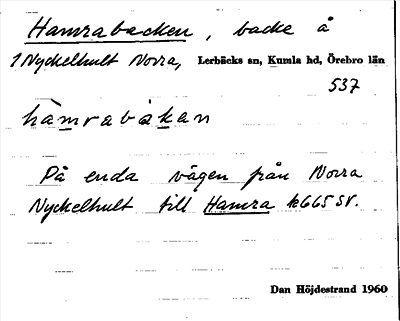 Hamrabacken, backe å
1 Nyckelhult Norra, Lerbäcks sn, Kumla hd, Örebro län
537
hàmrabàkan
På enda vägen från Norra
Nyckelhult till Hamra k665 SV.
Dan Höjdestrand 1960